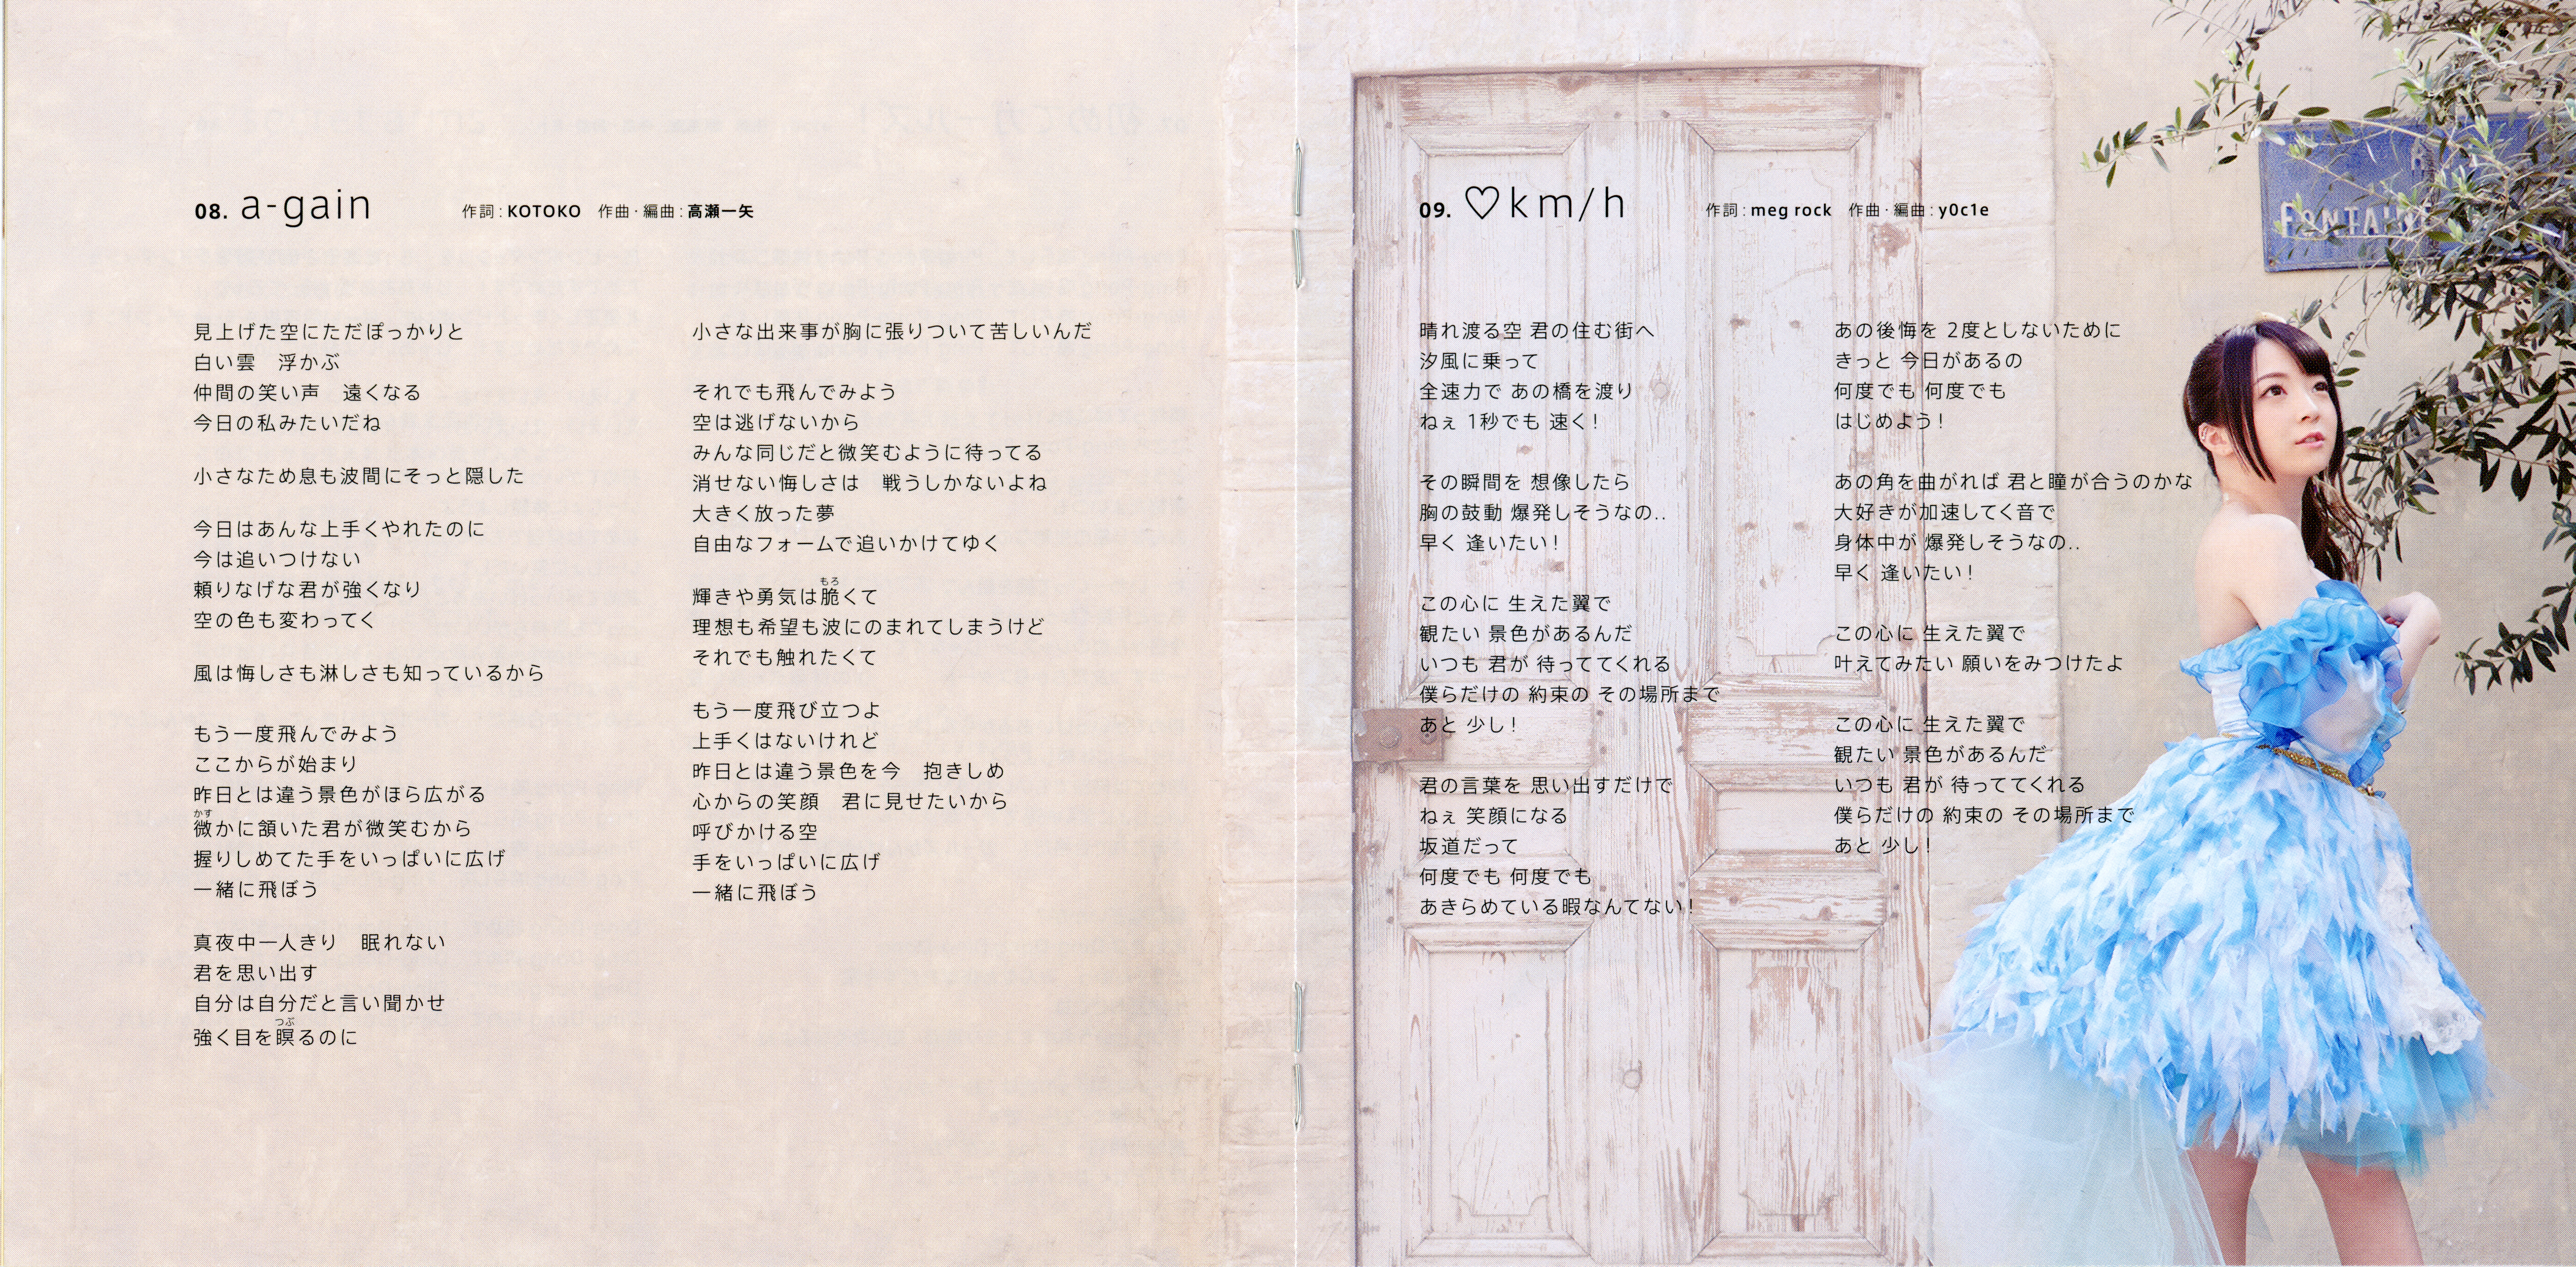 08. a-gain 作詞：KOTOKO 作曲・編曲：高瀬一矢
見上げた空にただぽっかりと
白い雲　浮かぶ
仲間の笑い声　遠くなる
今日の私みたいだね
小さなため息も波間にそっと隠した
今日はあんな上手くやれたのに
今は追いつけない
頼りなげな君が強くなり
空の色も変わってく
風は悔しさも淋しさも知っているから
もう一度飛んでみよう
ここからが始まり
昨日とは違う景色がほら広がる
かす
微かに頷いた君が微笑むから
握りしめてた手をいっぱいに広げ
一緒に飛ぼう
真夜中一人きり　眠れない
君を思い出す
自分は自分だと言い聞かせ
つぶ
強く目を瞑るのに
小さな出来事が胸に張りついて苦しいんだ
それでも飛んでみよう
空は逃げないから
みんな同じだと微笑むように待ってる
消せない悔しさは　戦うしかないよね
大きく放った夢
自由なフォームで追いかけてゆく
もろ
輝きや勇気は脆くて
理想も希望も波にのまれてしまうけど
それでも触れたくて
もう一度飛び立つよ
上手くはないけれど
昨日とは違う景色を今　抱きしめ
心からの笑顔　君に見せたいから
呼びかける空
手をいっぱいに広げ
一緒に飛ぼう
09. ♡km/h 作詞：meg rock 作曲・編曲：y0c1e
晴れ渡る空 君の住む街へ
汐風に乗って
全速力で あの橋を渡り
ねぇ 1秒でも 速く！
その瞬間を 想像したら
胸の鼓動 爆発しそうなの..
早く 逢いたい！
この心に 生えた翼で
観たい 景色があるんだ
いつも 君が 待っててくれる
僕らだけの 約束の その場所まで
あと 少し！
君の言葉を 思い出すだけで
ねぇ 笑顔になる
坂道だって
何度でも 何度でも
あきらめている暇なんてない！
あの後悔を 2度としないために
きっと 今日があるの
何度でも 何度でも
はじめよう！
あの角を曲がれば 君と瞳が合うのかな
大好きが加速してく音で
身体中が 爆発しそうなの..
早く 逢いたい！
この心に 生えた翼で
叶えてみたい 願いをみつけたよ
この心に 生えた翼で
観たい 景色があるんだ
いつも 君が 待っててくれる
僕らだけの 約束の その場所まで
あと 少し！